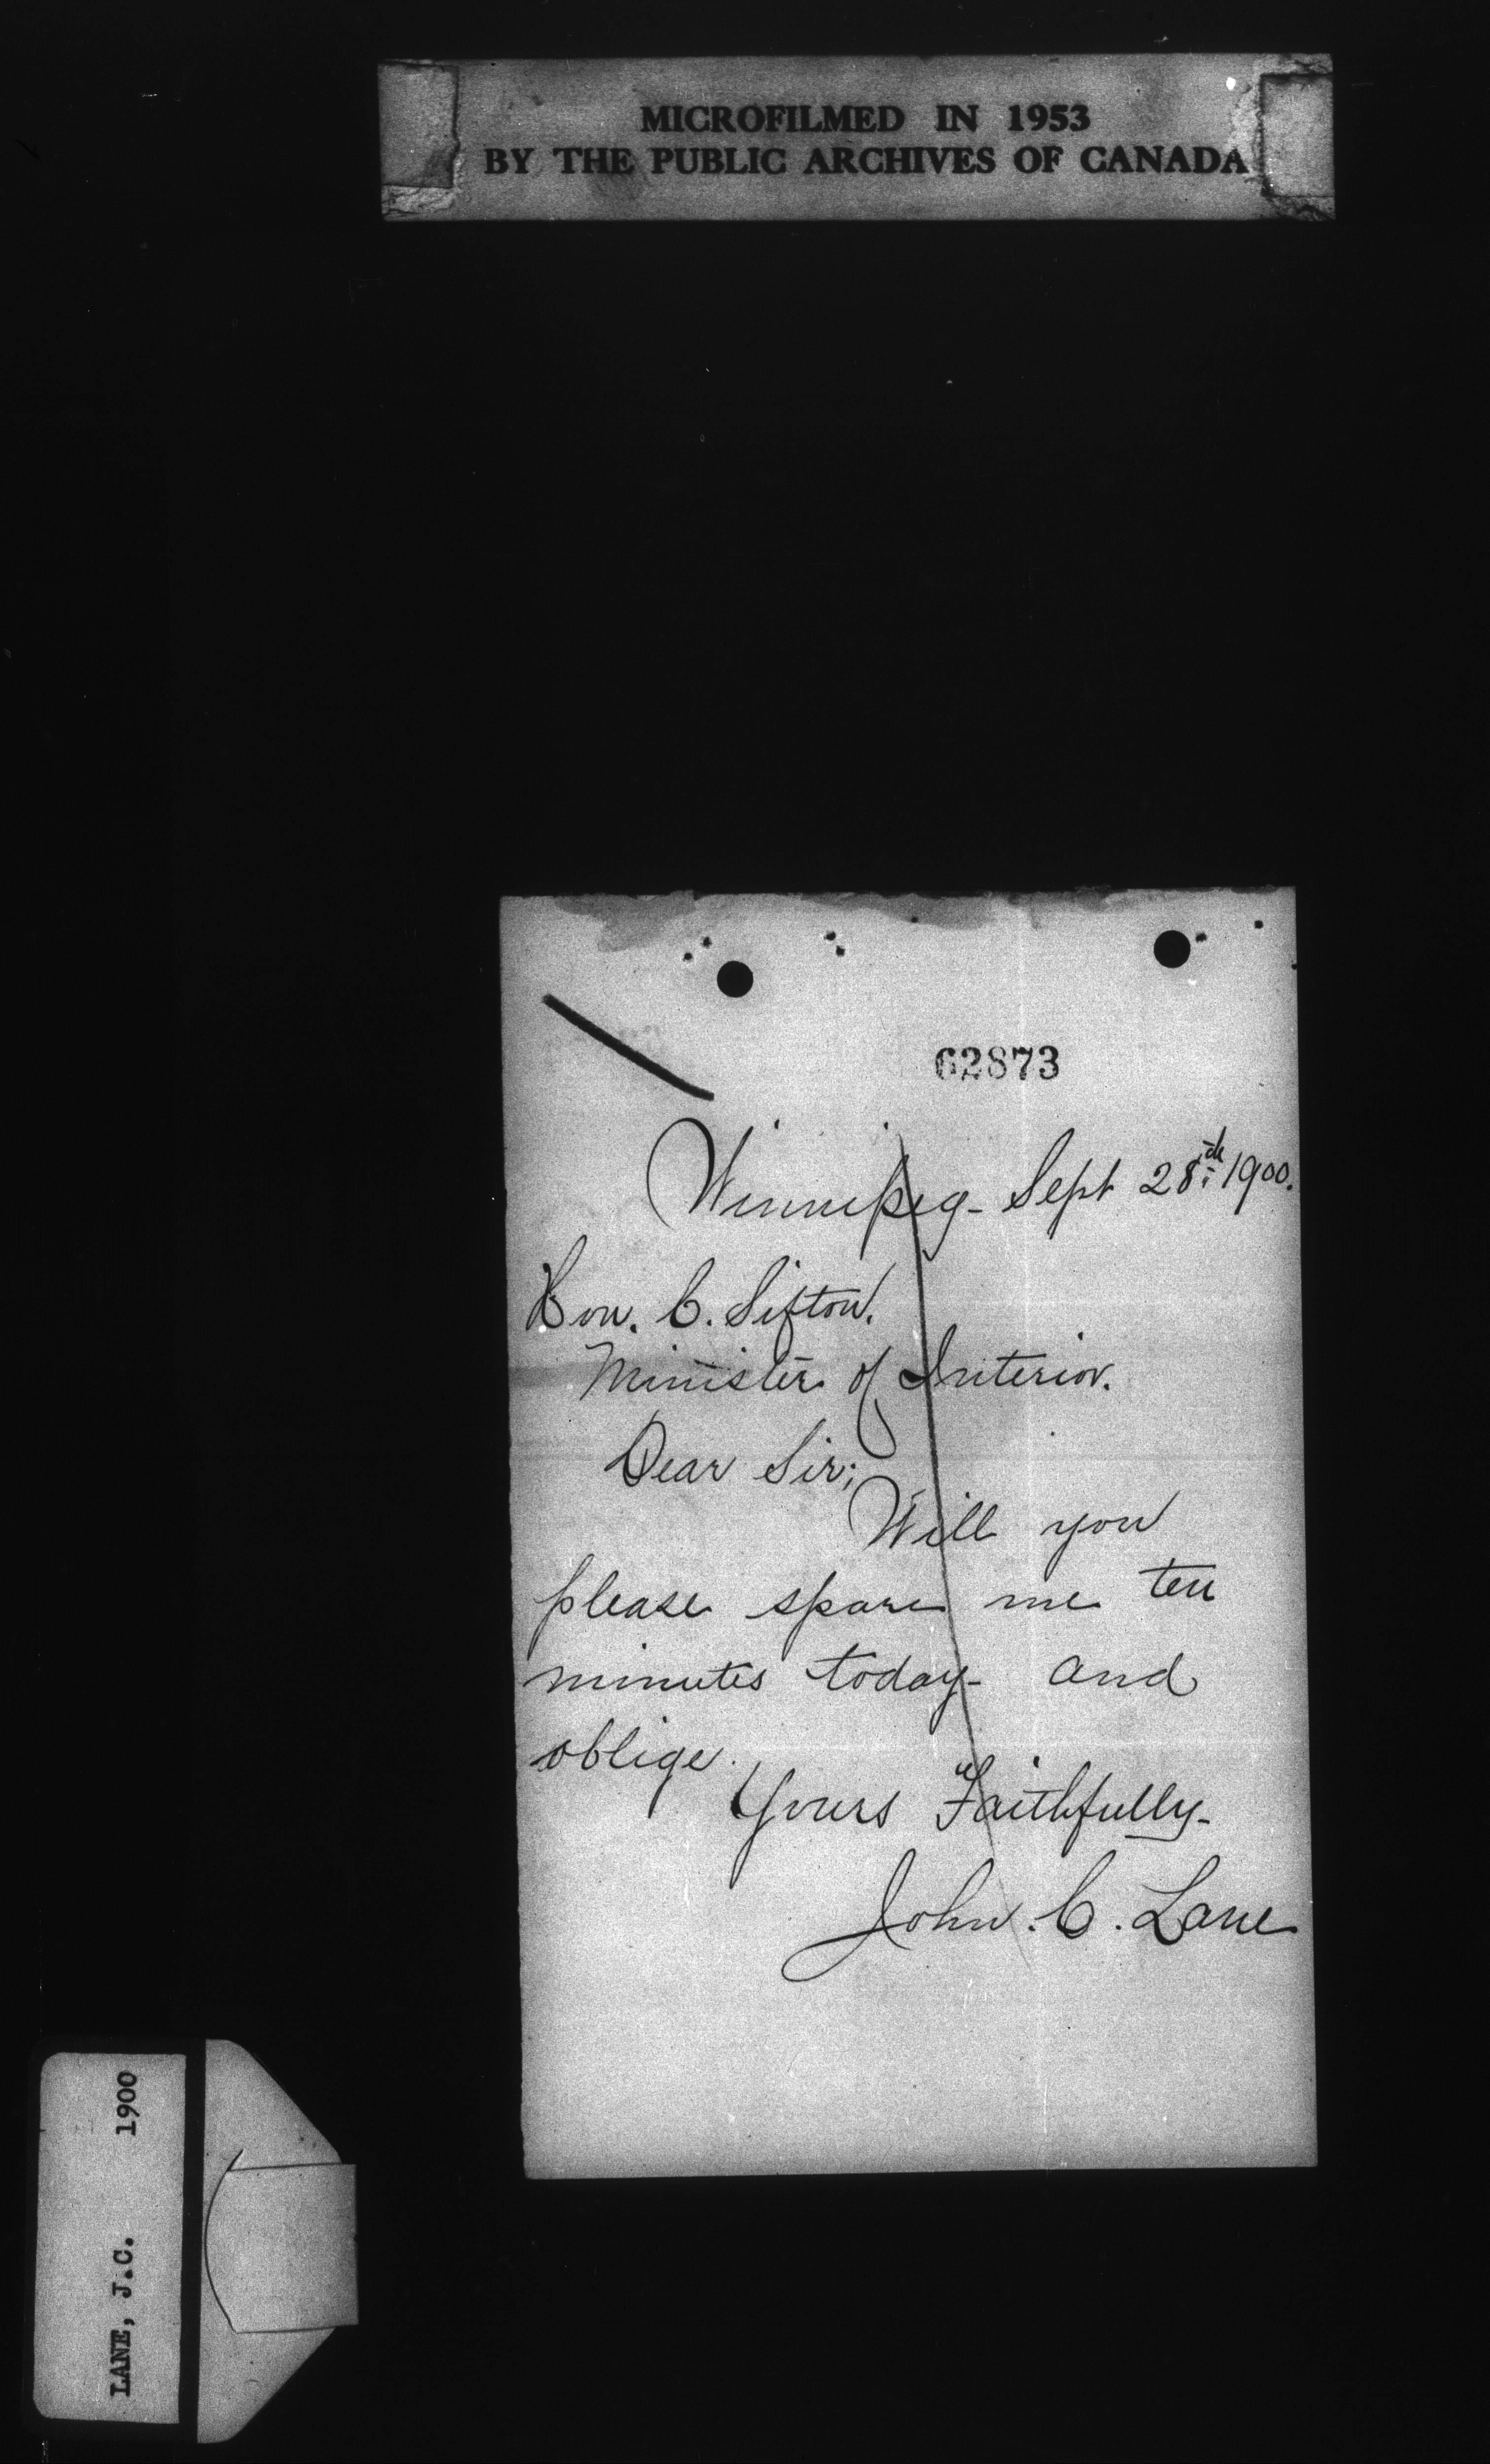 MICROFILMED IN 1953
BY THE PUBLIC ARCHIVES OF CANADA
62873
Winnipeg - Sept 28th 1900.
Hon. C. Sifton.
Minister of Interior.
Dear Sir;
Will you
please spare me ten
minutes today - and
oblige.
Yours Faithfully -
John. C. Lane
LANE, J.C. 1900